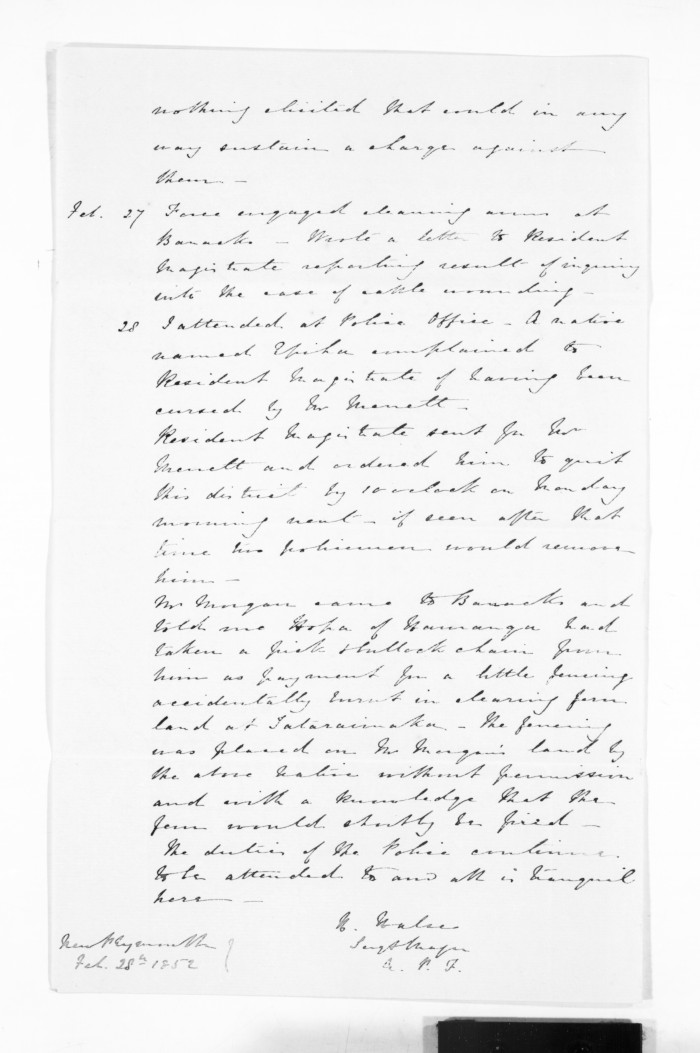 nothing elicited that could in any
way sustain a charge against
them —
Feb. 27 Force engaged cleaning arms at
Barracks — Wrote a letter to Resident
Magistrate reporting result of inquiry
into the case of cattle wounding —
28 I attended at Police Office — A native
named Epiha complained to
Resident Magistrate of having been
cursed by Mr
Resident Magistrate sent for Mr
and ordered him to quit
this district by 10 o'clock on Monday
morning next — if seen after that
time two policemen would remove
him —
Mr Morgan came to Barracks and
told me Hopa of had
taken a pick & bullock chain from
him as payment for a little fencing
accidentally burnt in clearing fern
land at Tataraimaka — The fencing
was placed on Mr Morgan's land by
the above native without permission
and with a knowledge that the
fern would shortly be fired —
The duties of the Police continue
to be attended to and all is tranquil
here —
H. Halse
Sergt Major
A. P. F.
New Plymouth
Feb. 28th 1852